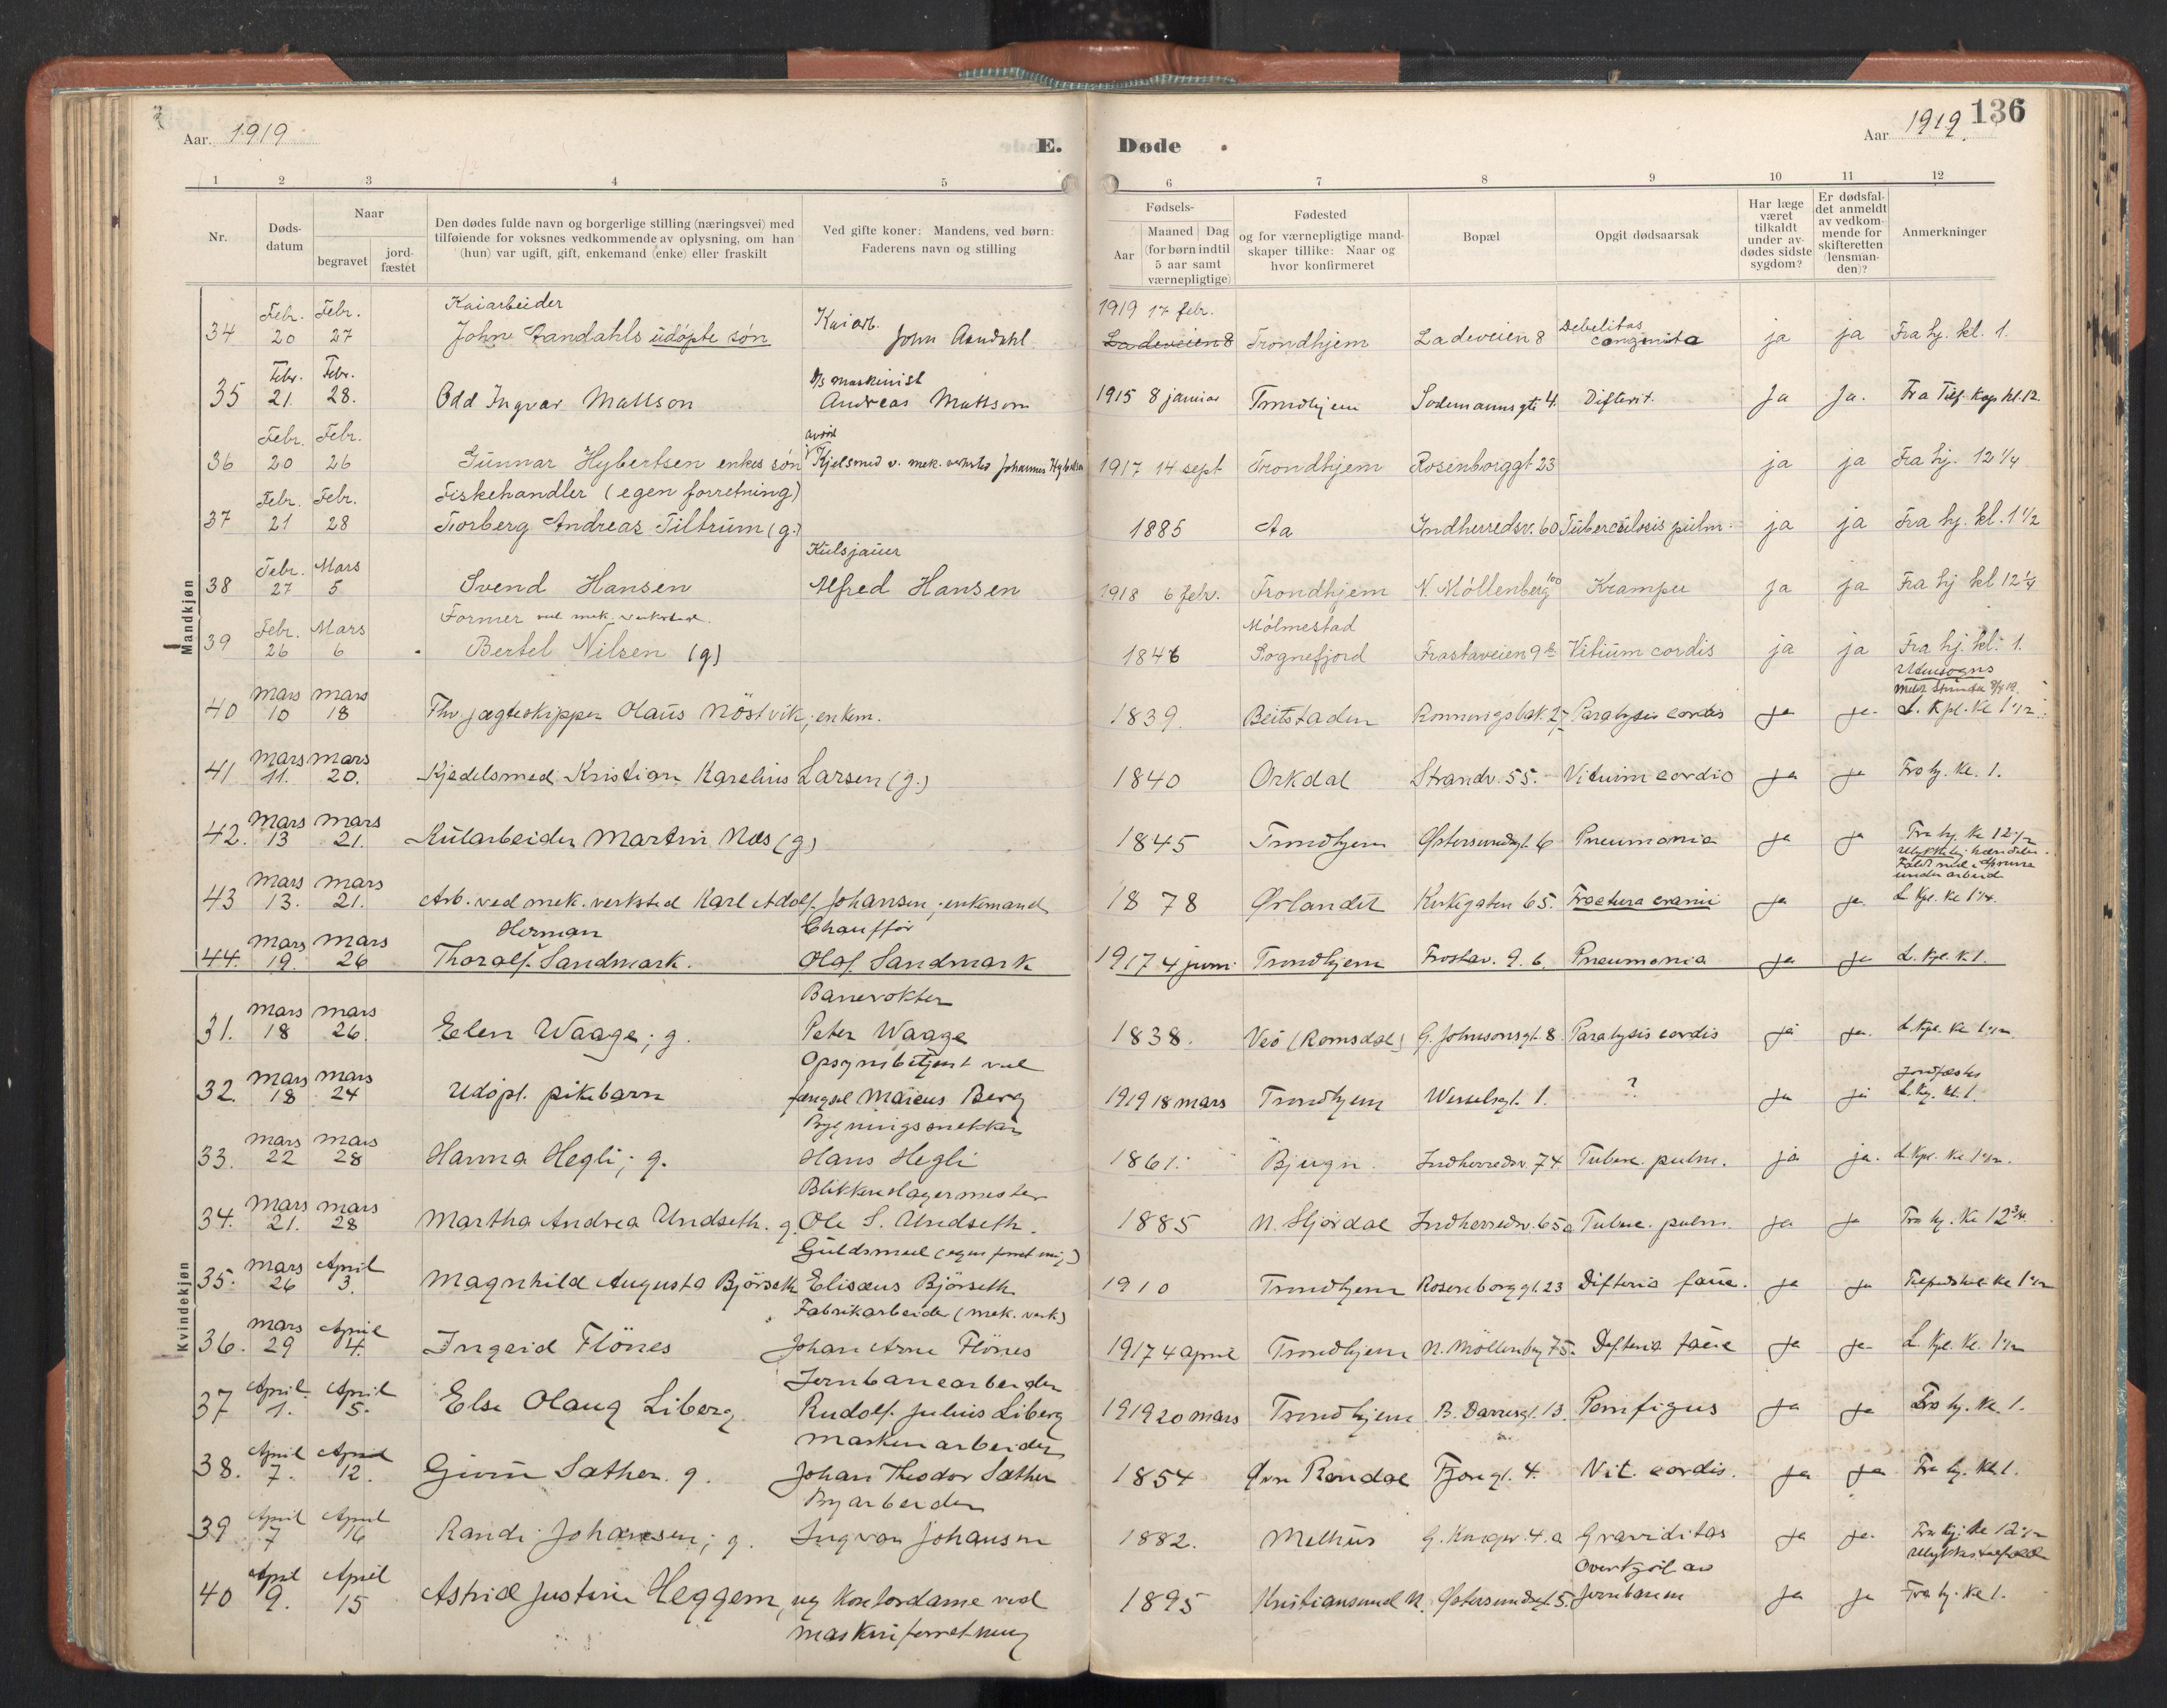 Aar. 1919
E. Døde
Aar 1919. 136
1 2 3 4 5 6 7 8 9 10 11 12
Nr.
Døds-datum
Naar
begravet
jord-fæstet
Den dødes fulde navn og borgerlige stilling (næringsvei) med tilføiende for voksnes vedkommende av oplysning, om han (hun) var ugift, gift, enkemand (enke) eller fraskilt
Ved gifte koner: Mandens, ved børn: Faderens navn og stilling
Fødsels-
Aar
Maaned Dag
(for børn indtil 5 aar samt værnepligtige)
Fødested
og for værnepligtige mandskaper tillike: Naar og hvor konfirmeret
Bopæl
Opgit dødsaarsak
Har læge været tilkaldt under avdødes sidste sygdom?
Er dødsfaldet anmeldt av vedkommende for skifteretten (lensmanden)?
Anmerkninger
Mandkjøn
34 Febr. 20 Febr. 27 Kaiarbeider John Aandahls udøpte søn Kaiarb. John Aandahl 1919 17 febr. Ladeveien 8 Trondhjem Ladeveien 8 Debelitas congenita ja ja Fra hj. kl. 1.
35 Febr. 21. Febr. 28. Odd Ingvar Mattson D/S maskinist Andreas Mattson 1915 8 januar Trondhjem Sodemannsgt. 4. Difterit. Ja Ja. Fra Tilf. Kap kl. 12.
36 Febr. 20 Febr. 26 Gunnar Hybertsen enkes søn Kjelsmed v. mek. verksted Johannes Hybertsen 1917 14 sept Trondhjem Rosenborggt 23 ja ja Fra hj. 12 1/4
37 Febr. 21 Febr. 28 Fiskehandler (egen forretning) Torberg Andreas Tiltrum (g.) 1885 Aa Indherredsv. 60 Tuberculosis pulm. ja ja Fra hj. kl. 1 1/2
38 Febr. 27 Mars 5 Svend Hansen Kulsjauer Alfred Hansen 1918 6 febr. Trondhjem N. Møllenberg 100 Kramper ja ja Fra hj kl 12 1/4
39 Febr. 26 Mars 6 Former ved mek. verksted. Bertel Nilsen (g) 1846 Mólmestad Sognefjord Frostaveien 9 b Vitium cordis ja ja Fra hj. kl. 1.
40 Mars 10 Mars 18 Fhv. jægteskipper Olaus Nöstvik; enkem. 1839. Beitstaden Ronningsbak. 27 Paralysis cordis ja ja Utensogns L. Kpl. Kl 1 1/2
41 Mars 11. Mars 20. Kjedelsmed Kristian Karelius Larsen (g.) 1840 Orkdal Strandv. 55. Vitium cordis ja ja Fra hj. kl. 1.
42. Mars 13 Mars 21. Kularbeider Martin Næs (g) 1845 Trondhjem Østersundsgt. 6 Pneumonia ja ja Fra hj. kl 12 1/2
43 Mars 13. Mars 21. Arb. ved mek. verksted Karl Adolf Johansen; enkemand 1878 Ørlandet Kirkegaten 65. Fractura cranii ja ja Ulykkelig hændelse. under arbeid L. Kpl. kl 1 1/4.
44. Mars 19. Mars 26 Thoralf Herman Sandmark. Chauffør Olaf Sandmark 1917 4 juni Trondhjem Frostav. 9. b. Pneumonia ja ja L. Kpl. k 1.
Kvindekjøn
31. Mars 18 Mars 26. Elen Waage; g. Banevokter Peter Waage 1838. Veö (Romsdal) G. Johnsonsgt. 8. Paralysis cordis ja ja. L. Kpl. kl 1 1/2
32. Mars 18 Mars 24 Udöpt. pikebarn Opsynsbetjent ved fængsel Maieus Berg 1919 18 mars Trondhjem Wesselsgt. 1. ? ja ja Jordfæstes L. Kp. kl. 1.
33. Mars 22 Mars 28 Hanna Hegli; g. Bygningssnekker Hans Hegli 1861. Bjugn. Indherredsv. 74 Tuberc. pulm. ja ja. L. Kpl. kl. 1 1/2.
34. Mars 21. Mars 28 Martha Andrea Undseth. g. Blikkenslagermester Ole S. Undseth. 1885 N. Stjördal Indherredsv. 65a Tuberc. pulm. ja ja Fra hj. kl 12 3/4.
35. Mars 26 April 3. Magnhild Augusta Björseth Guldsmed (egen forretning) Elisæus Björseth 1910 Trondhjem Rosenborggt. 23 Difteria fauc. ja ja Tilfredshet kl 1 1/2
36. Mars 29 April 4. Ingrid Flönes Fabrikarbeider (mek. verk.) Johan Arne Flönes 1917 4 april Trondhjem N. Möllenberg 75. Difteria fauc ja ja L. Kpl. kl. 1 1/2
37 April 1. April 5. Else Olaug Liberg Jernbanearbeider Rudolf Julius Liberg 1919 20 mars Trondhjem B. Darresgt. 13. Pemfigus ja ja Fra hj. kl. 1.
38. April 7. April 12. Guru Sæther. g. Maskinarbeider Johan Theodor Sæther 1854 Øvre Rendal Fjordgt. 4. Vit. cordis. ja ja Fra hj. kl. 1.
39 April 7 April 16 Randi Johansen; g. Byarbeider Ingvar Johansen 1882. Melhus G. Kongev. 4. a Graviditas ja ja. Fra hj. kl 12 1/2
40 April 9. April 15 Astrid Justine Heggem, ug kontordame ved maskinforretning 1895 Kristiansund N. Østersundsgt. 5. Overkjört av Jernbanen ja ja Ulykkestilfælde Fra hj. kl 1.